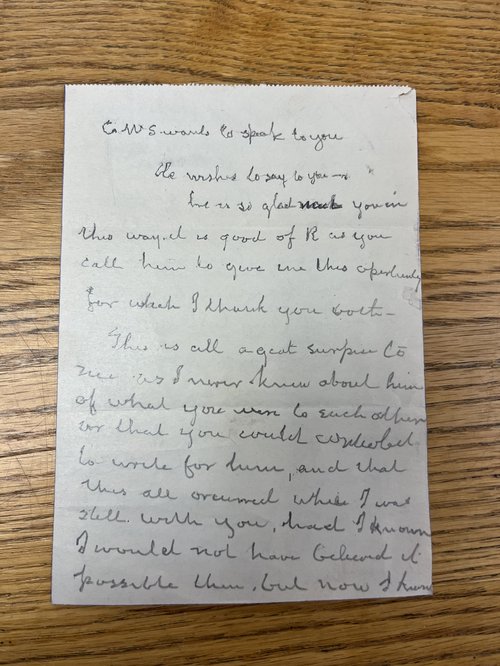 wants to speak to you
He wishes to say to you
he is so glad you in
this way. It is good of R as you
call him to give me this opertunity
for which I thank you both –
This is all a great to
me as I never knew about him
of what you were to each other
or that you could
to write for him, and that
this all occurred while I was
still with you, had I known
I would not have believed it
possible then, but now I know